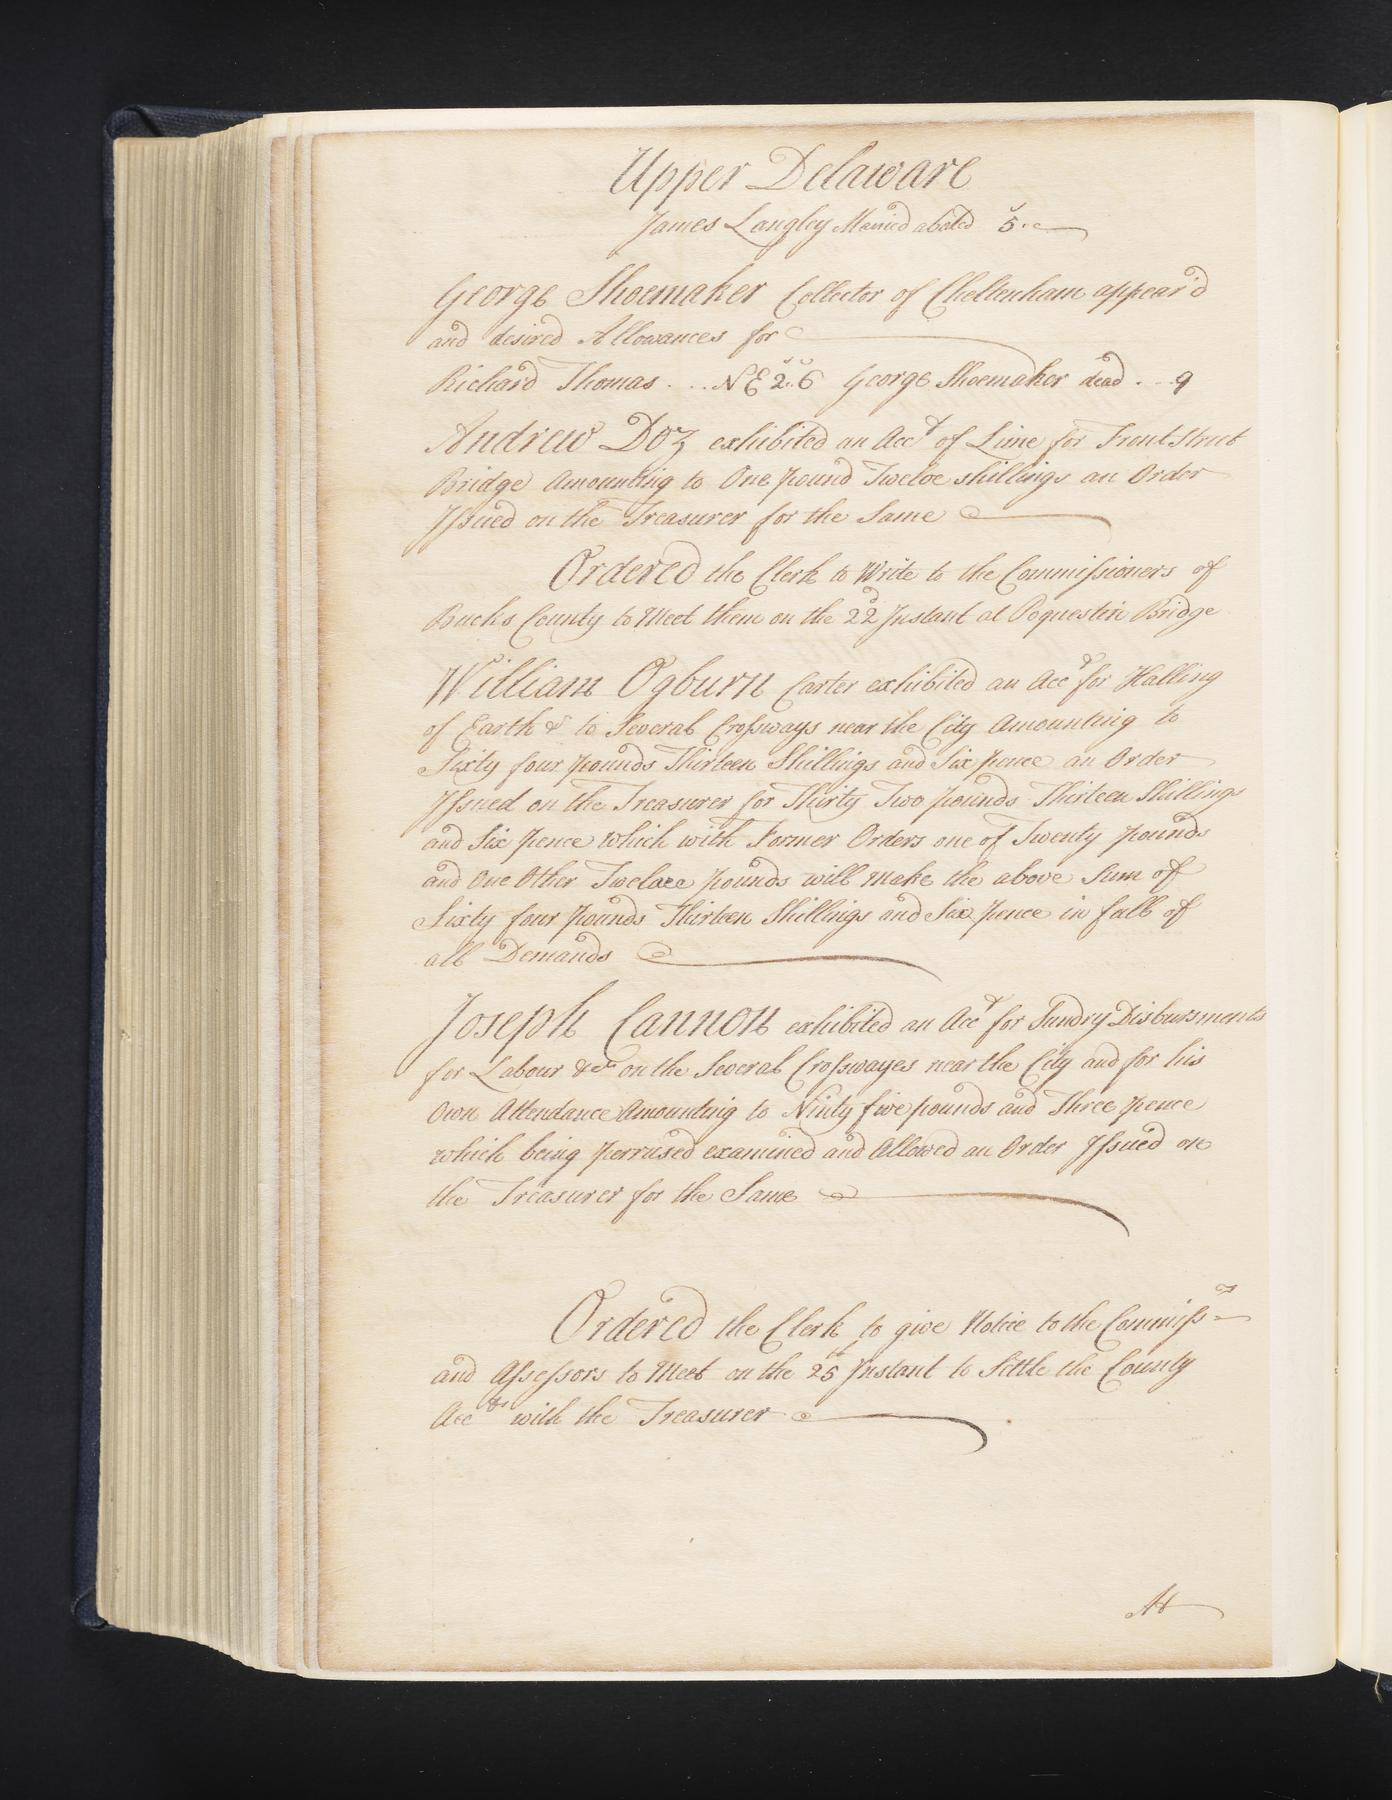 Upper Delaware
James Langley Married abated 5..
George Shoemaker Collector of Cheltenham appear'd
and desired Allowances for
Richard Thomas . . . N E 2..6 George Shoemaker dead . . . 9
Andrew Doz exhibited an Acct of Lime for Front Street
Bridge Amounting to One pound Twelve shillings an Order
Issued on the Treasurer for the Same
Ordered the Clerk to Write to the Commissioners of
Bucks County to Meet them on the 22d Instant at Poquestin Bridge
William Ogburn Carter exhibited an Acct for Halling
of Earth &c to Several Crossways near the City Amounting to
Sixty four pounds Thirteen Shillings and Six pence an Order
Issued on the Treasurer for Thirty Two pounds Thirteen Shillings
and Six pence which with Former Orders one of Twenty pounds
and One Other Twelve pounds will make the above Sum of
Sixty four pounds Thirteen Shillings and Six pence in full of
all Demands
Joseph Cannon exhibited an Acct for Sundry Disbursments
for Labour &ca on the Several Crosswayes near the City and for his
Own Attendance Amounting to Ninty five pounds and Three pence
which being perrused examined and Allowed an Order Issued on
the Treasurer for the Same
Ordered the Clerk to give Notice to the Commissrs
and Assessors to Meet on the 25th Instant to Settle the County
Accts with the Treasurer
At